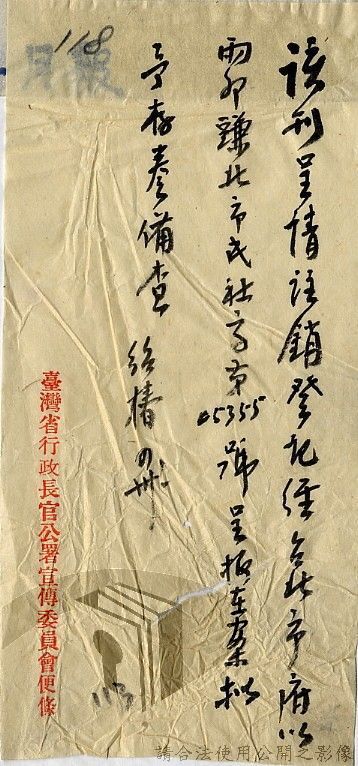 118
報
該刊呈情註銷登記經台北市府以
雨卯謙北市民社方第05355號呈报在案拟
予存卷備查
臺灣省行政長官公署宣傳委員會便條
113
請合法使用公開之影像